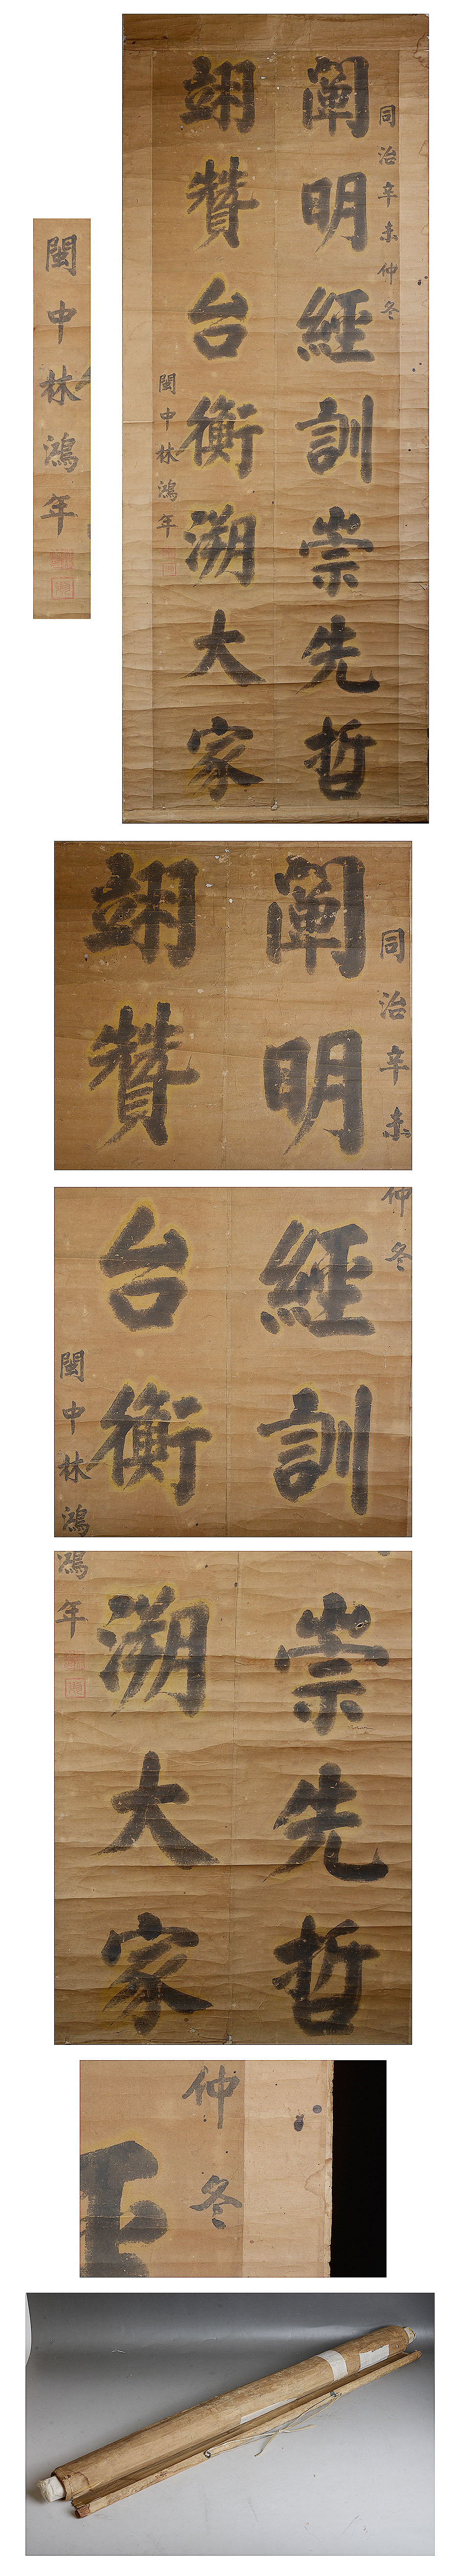 同治辛未仲冬
闡明經訓崇先哲
翊贊台衡溯大家
閩中林鴻年
閩中林鴻年
翊贊
闡明
同治辛未
仲冬
經訓
台衡
閩中林鴻
崇先哲
溯大家
鴻年
仲冬